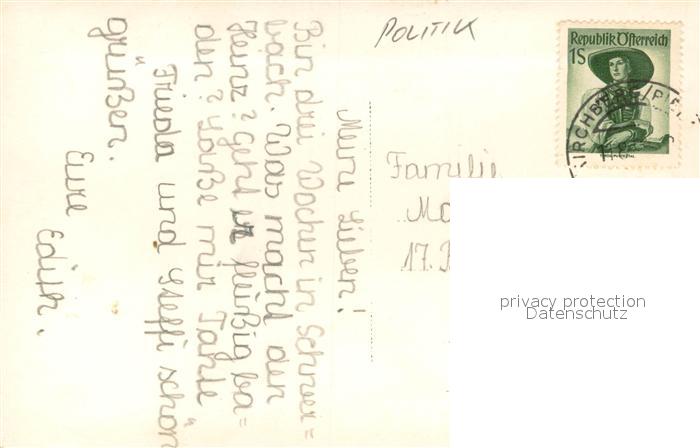 POLITIK
Republik Österreich
1S
KIRCHBERG
Familie
17.
privacy protection
Datenschutz
Meine Lieben!
Bin drei Wochen in Schnee=
bach. Was macht den
Heinz? Geht er fleißig ba=
den? Laße mir Tante
Frieda und Steffi schön
grüßen.
Eure
Edith.